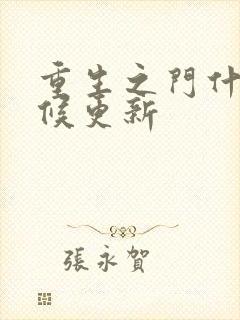 重生之門什
候更新
張永賀